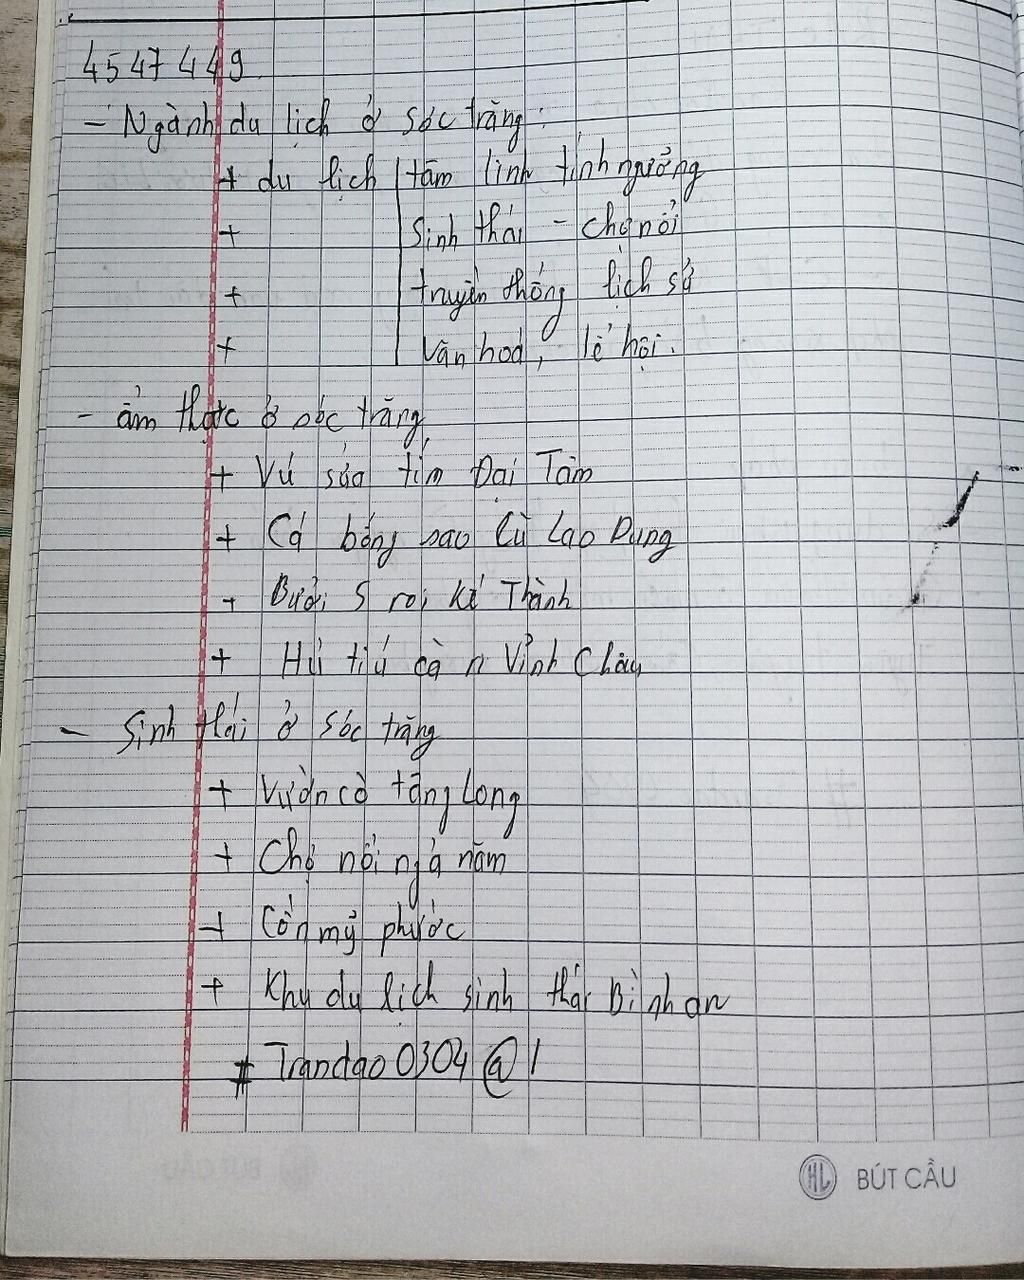 4547449
- Ngành du lịch ở sóc trăng:
+ du lịch tâm linh tính ngưởng
+ Sinh thái - chợ nỏi
+ truyền thống lịch sử
+ văn hoá, lẻ hội.
- ẩm thực ở sóc trăng
+ Vú sửa tím Đại Tâm
+ Cá bóng sao Cù Lao Dung
+ Bưởi 5 roi Kế Thành
+ Hủ tiú cà ri Vỉnh Châu
- Sinh thái ở sóc trăng
+ Vườn cò tâng Long
+ Chợ nỏi ngả năm
+ Cồn mỷ phước
+ Khu du lịch sinh thái Bình an
# Trandao0304@1
HL BÚT CẦU